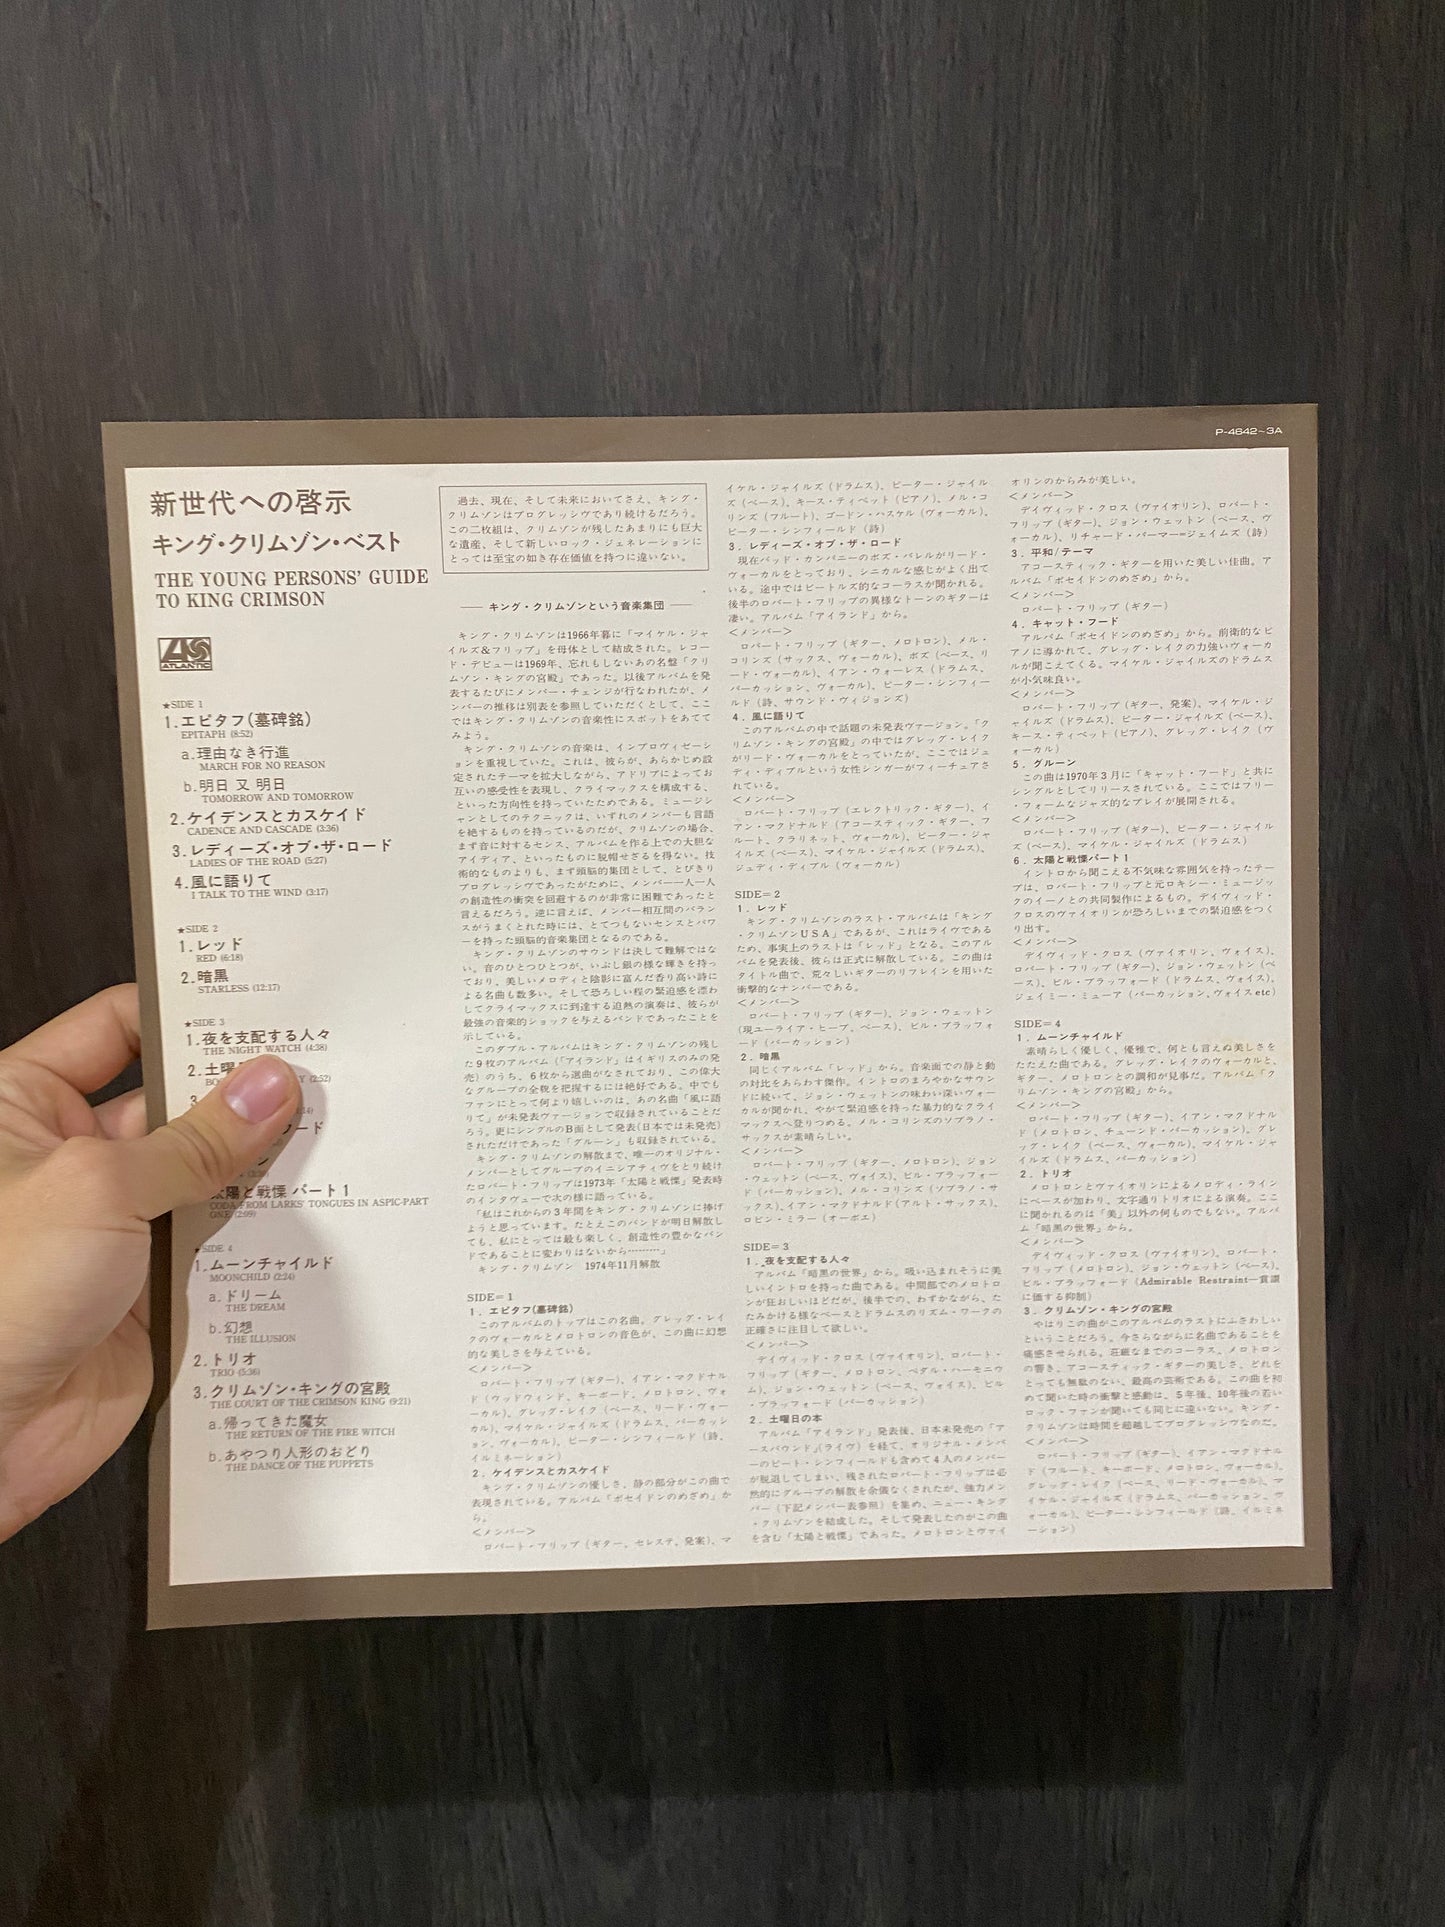 P-4642~3A
新世代への啓示
キング・クリムゾン・ベスト
THE YOUNG PERSONS' GUIDE
TO KING CRIMSON
ATLANTIC
★SIDE 1
1.エピタフ(墓碑銘)
EPITAPH (8:52)
a.理由なき行進
MARCH FOR NO REASON
b.明日 又 明日
TOMORROW AND TOMORROW
2.ケイデンスとカスケイド
CADENCE AND CASCADE (3:36)
3.レディーズ・オブ・ザ・ロード
LADIES OF THE ROAD (5:27)
4.風に語りて
I TALK TO THE WIND (3:17)
★SIDE 2
1.レッド
RED (6:18)
2.暗黒
STARLESS (12:17)
★SIDE 3
1.夜を支配する人々
THE NIGHT WATCH (4:38)
2.土曜
(2:52)
3.
ード
ン
太陽と戦慄 パート1
CODA FROM LARKS' TONGUES IN ASPIC-PART
ONE (2:09)
★SIDE 4
1.ムーンチャイルド
MOONCHILD (2:24)
a.ドリーム
THE DREAM
b.幻想
THE ILLUSION
2.トリオ
TRIO (5:36)
3.クリムゾン・キングの宮殿
THE COURT OF THE CRIMSON KING (9:21)
a.帰ってきた魔女
THE RETURN OF THE FIRE WITCH
b.あやつり人形のおどり
THE DANCE OF THE PUPPETS
過去、現在、そして未来においてさえ、キング・
クリムゾンはプログレッシヴであり続けるだろう。
この二枚組は、クリムゾンが残したあまりにも巨大
な遺産、そして新しいロック・ジェネレーションに
とっては至宝の如き存在価値を持つに違いない。
—— キング・クリムゾンという音楽集団 ——
キング・クリムゾンは1966年暮に「マイケル・ジャ
イルズ&フリップ」を母体として結成された。レコー
ド・デビューは1969年、忘れもしないあの名盤「クリ
ムゾン・キングの宮殿」であった。以後アルバムを発
表するたびにメンバー・チェンジが行なわれたが、メ
ンバーの推移は別表を参照していただくとして、ここ
ではキング・クリムゾンの音楽性にスポットをあてて
みよう。
キング・クリムゾンの音楽は、インプロヴィゼーシ
ョンを重視していた。これは、彼らが、あらかじめ設
定されたテーマを拡大しながら、アドリブによってお
互いの感受性を表現し、クライマックスを構成する、
といった方向性を持っていたためである。ミュージシ
ャンとしてのテクニックは、いずれのメンバーも言語
を絶するものを持っているのだが、クリムゾンの場合、
まず音に対するセンス、アルバムを作る上での大胆な
アイディア、といったものに脱帽せざるを得ない。技
術的なものよりも、まず頭脳的集団として、とびきり
プログレッシヴであったがために、メンバー一人一人
の創造性の衝突を回避するのが非常に困難であったと
言えるだろう。逆に言えば、メンバー相互間のバラン
スがうまくとれた時には、とてつもないセンスとパワ
ーを持った頭脳的音楽集団となるのである。
キング・クリムゾンのサウンドは決して難解ではな
い。音のひとつひとつが、いぶし銀の様な輝きを持っ
ており、美しいメロディと陰影に富んだ香り高い詩に
よる名曲も数多い。そして恐ろしい程の緊迫感を漂わ
してクライマックスに到達する迫熱の演奏は、彼らが
最強の音楽的ショックを与えるバンドであったことを
示している。
このダブル・アルバムはキング・クリムゾンの残し
た9枚のアルバム(「アイランド」はイギリスのみの発
売)のうち、6枚から選曲がなされており、この偉大
なグループの全貌を把握するには絶好である。中でも
ファンにとって何より嬉しいのは、あの名曲「風に語
りて」が未発表ヴァージョンで収録されていることだ
ろう。更にシングルのB面として発表(日本では未発売)
されただけであった「グルーン」も収録されている。
キング・クリムゾンの解散まで、唯一のオリジナル・
メンバーとしてグループのイニシアティヴをとり続け
たロバート・フリップは1973年「太陽と戦慄」発表時
のインタヴューで次の様に語っている。
「私はこれからの3年間をキング・クリムゾンに捧げ
ようと思っています。たとえこのバンドが明日解散し
ても、私にとっては最も楽しく、創造性の豊かなバン
ドであることに変わりはないから………」
キング・クリムゾン 1974年11月解散
SIDE=1
1．エピタフ(墓碑銘)
このアルバムのトップはこの名曲。グレッグ・レイ
クのヴォーカルとメロトロンの音色が、この曲に幻想
的な美しさを与えている。
<メンバー>
ロバート・フリップ(ギター)、イアン・マクドナル
ド(ウッドウィンド、キーボード、メロトロン、ヴォ
ーカル)、グレッグ・レイク(ベース、リード・ヴォー
カル)、マイケル・ジャイルズ(ドラムス、パーカッシ
ョン、ヴォーカル)、ピーター・シンフィールド(詩、
イルミネーション)
2．ケイデンスとカスケイド
キング・クリムゾンの優しさ、静の部分がこの曲で
表現されている。アルバム「ポセイドンのめざめ」か
ら。
<メンバー>
ロバート・フリップ(ギター、セレステ、発案)、マ
イケル・ジャイルズ(ドラムス)、ピーター・ジャイル
ズ(ベース)、キース・ティペット(ピアノ)、メル・コ
リンズ(フルート)、ゴードン・ハスケル(ヴォーカル)、
ピーター・シンフィールド(詩)
3．レディーズ・オブ・ザ・ロード
現在バッド・カンパニーのボズ・バレルがリード・
ヴォーカルをとっており、シニカルな感じがよく出て
いる。途中ではビートルズ的なコーラスが聞かれる。
後半のロバート・フリップの異様なトーンのギターは
凄い。アルバム「アイランド」から。
<メンバー>
ロバート・フリップ(ギター、メロトロン)、メル・
コリンズ(サックス、ヴォーカル)、ボズ(ベース、リ
ード・ヴォーカル)、イアン・ウォーレス(ドラムス、
パーカッション、ヴォーカル)、ピーター・シンフィー
ルド(詩、サウンド・ヴィジョンズ)
4．風に語りて
このアルバムの中で話題の未発表ヴァージョン。「ク
リムゾン・キングの宮殿」の中ではグレッグ・レイク
がリード・ヴォーカルをとっていたが、ここではジュ
ディ・ディブルという女性シンガーがフィーチュアさ
れている。
<メンバー>
ロバート・フリップ(エレクトリック・ギター)、イ
アン・マクドナルド(アコースティック・ギター、フ
ルート、クラリネット、ヴォーカル)、ピーター・ジャ
イルズ(ベース)、マイケル・ジャイルズ(ドラムス)、
ジュディ・ディブル(ヴォーカル)
SIDE=2
1．レッド
キング・クリムゾンのラスト・アルバムは「キング
・クリムゾンUSA」であるが、これはライヴである
ため、事実上のラストは「レッド」となる。このアル
バムを発表後、彼らは正式に解散している。この曲は
タイトル曲で、荒々しいギターのリフレインを用いた
衝撃的なナンバーである。
<メンバー>
ロバート・フリップ(ギター)、ジョン・ウェットン
(現ユーライア・ヒープ、ベース)、ビル・ブラッフォ
ード(パーカッション)
2．暗黒
同じくアルバム「レッド」から。音楽面での静と動
の対比をあらわす傑作。イントロのまろやかなサウン
ドに続いて、ジョン・ウェットンの味わい深いヴォー
カルが聞かれ、やがて緊迫感を持った暴力的なクライ
マックスへ登りつめる。メル・コリンズのソプラノ・
サックスが素晴らしい。
<メンバー>
ロバート・フリップ(ギター、メロトロン)、ジョン
・ウェットン(ベース、ヴォイス)、ビル・ブラッフォー
ド(パーカッション)、メル・コリンズ(ソプラノ・サ
ックス)、イアン・マクドナルド(アルト・サックス)、
ロビン・ミラー(オーボエ)
SIDE=3
1．夜を支配する人々
アルバム「暗黒の世界」から。吸い込まれそうに美
しいイントロを持った曲である。中間部でのメロトロ
ンが狂おしいほどだが、後半での、わずかながら、た
たみかける様なベースとドラムスのリズム・ワークの
正確さに注目して欲しい。
<メンバー>
デイヴィッド・クロス(ヴァイオリン)、ロバート・
フリップ(ギター、メロトロン、ペダル・ハーモニウ
ム)、ジョン・ウェットン(ベース、ヴォイス)、ビル
・ブラッフォード(パーカッション)
2．土曜日の本
アルバム「アイランド」発表後、日本未発売の「ア
ースバウンド」(ライヴ)を経て、オリジナル・メンバ
ーのピート・シンフィールドも含めて4人のメンバー
が脱退してしまい、残されたロバート・フリップは必
然的にグループの解散を余儀なくされたが、強力メン
バー(下記メンバー表参照)を集め、ニュー・キング
・クリムゾンを結成した。そして発表したのがこの曲
を含む「太陽と戦慄」であった。メロトロンとヴァイ
オリンのからみが美しい。
<メンバー>
デイヴィッド・クロス(ヴァイオリン)、ロバート・
フリップ(ギター)、ジョン・ウェットン(ベース、ヴ
ォーカル)、リチャード・パーマー=ジェイムズ(詩)
3．平和/テーマ
アコースティック・ギターを用いた美しい佳曲。ア
ルバム「ポセイドンのめざめ」から。
<メンバー>
ロバート・フリップ(ギター)
4．キャット・フード
アルバム「ポセイドンのめざめ」から。前衛的なピ
アノに導かれて、グレッグ・レイクの力強いヴォーカ
ルが聞こえてくる。マイケル・ジャイルズのドラムス
が小気味良い。
<メンバー>
ロバート・フリップ(ギター、発案)、マイケル・ジ
ャイルズ(ドラムス)、ピーター・ジャイルズ(ベース)、
キース・ティペット(ピアノ)、グレッグ・レイク(ヴ
ォーカル)
5．グルーン
この曲は1970年3月に「キャット・フード」と共に
シングルとしてリリースされている。ここではフリー
・フォームなジャズ的なプレイが展開される。
<メンバー>
ロバート・フリップ(ギター)、ピーター・ジャイル
ズ(ベース)、マイケル・ジャイルズ(ドラムス)
6．太陽と戦慄パート1
イントロから聞こえる不気味な雰囲気を持ったテー
プは、ロバート・フリップと元ロキシー・ミュージッ
クのイーノとの共同製作によるもの。デイヴィッド・
クロスのヴァイオリンが恐ろしいまでの緊迫感をつく
り出す。
<メンバー>
デイヴィッド・クロス(ヴァイオリン、ヴォイス)、
ロバート・フリップ(ギター)、ジョン・ウェットン(ベ
ース)、ビル・ブラッフォード(ドラムス、ヴォイス)、
ジェイミー・ミューア(パーカッション、ヴォイスetc)
SIDE=4
1．ムーンチャイルド
素晴らしく優しく、優雅で、何とも言えぬ美しさを
たたえた曲である。グレッグ・レイクのヴォーカルと、
ギター、メロトロンとの調和が見事だ。アルバム「ク
リムゾン・キングの宮殿」から。
<メンバー>
ロバート・フリップ(ギター)、イアン・マクドナル
ド(メロトロン、チューンド・パーカッション)、グレ
ッグ・レイク(ベース、ヴォーカル)、マイケル・ジャ
イルズ(ドラムス、パーカッション)
2．トリオ
メロトロンとヴァイオリンによるメロディ・ライン
にベースが加わり、文字通りトリオによる演奏。ここ
に聞かれるのは「美」以外の何ものでもない。アルバ
ム「暗黒の世界」から。
<メンバー>
デイヴィッド・クロス(ヴァイオリン)、ロバート・
フリップ(メロトロン)、ジョン・ウェットン(ベース)、
ビル・ブラッフォード(Admirable Restraint—賞讃
に価する抑制)
3．クリムゾン・キングの宮殿
やはりこの曲がこのアルバムのラストにふさわしい
ということだろう。今さらながらに名曲であることを
痛感させられる。荘厳なまでのコーラス、メロトロン
の響き、アコースティック・ギターの美しさ、どれを
とっても無駄のない、最高の芸術である。この曲を初
めて聞いた時の衝撃と感動は、5年後、10年後の若い
ロック・ファンが聞いても同じに違いない。キング・
クリムゾンは時間を超越してプログレッシヴなのだ。
<メンバー>
ロバート・フリップ(ギター)、イアン・マクドナル
ド(フルート、キーボード、メロトロン、ヴォーカル)、
グレッグ・レイク(ベース、リード・ヴォーカル)、マ
イケル・ジャイルズ(ドラムス、パーカッション、ヴ
ォーカル)、ピーター・シンフィールド(詩、イルミネ
ーション)